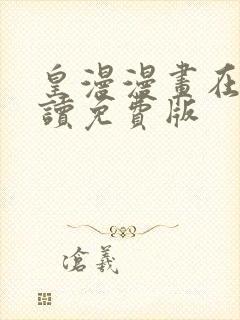 皇漫漫畫在
讀免費版
滄羲